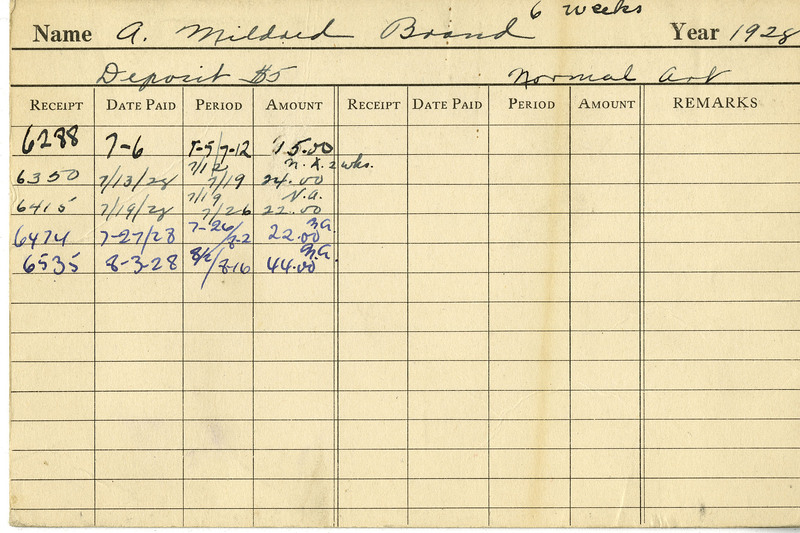 6 weeks
Name A. Mildred Brand Year 1928
Deposit $5 Normal Art
RECEIPT DATE PAID PERIOD AMOUNT RECEIPT DATE PAID PERIOD AMOUNT REMARKS
6288 7-6 7-5/7-12 15.00
N.A. 2 wks.
6350 7/13/28 7/12 7/19 24.00
N.A.
6415 7/19/28 7/19 7/26 22.00
N.A.
6474 7-27/28 7-26/8-2 22.00
N.A.
6535 8-3-28 8/2/8-16 44.00